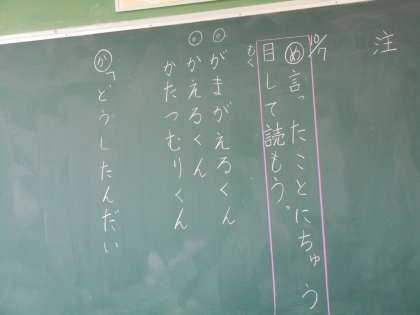 注
10/7
め 言ったことにちゅう
もく
目して読もう。
がまがえるくん
かえるくん
かたつむりくん
か「どうしたんだい